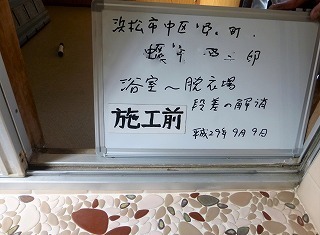 浜松市中区 町
邸
浴室〜脱衣場
段差の解消
施工前
平成29年9月9日